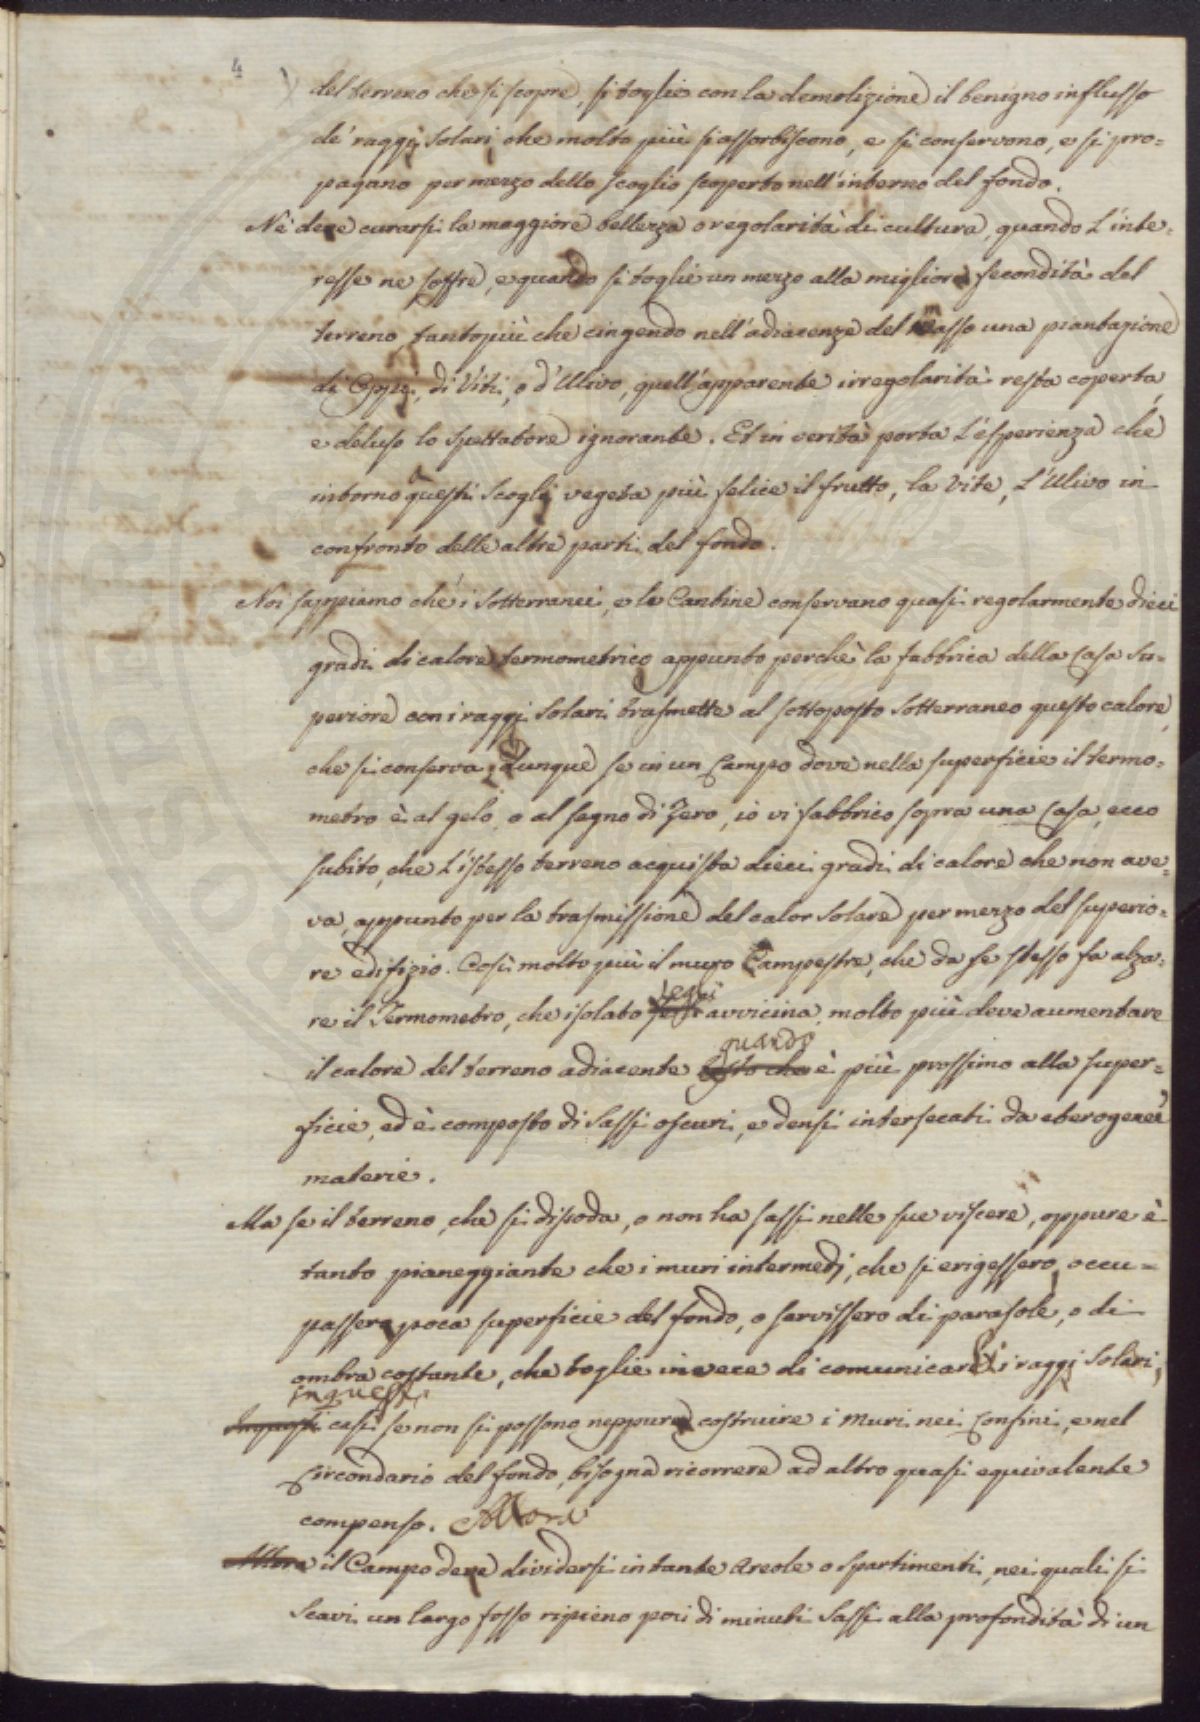 4
del terreno che si scopre, si toglie con la demolizione il benigno influsso
de' raggi Solari che molto più si assorbiscono, e si conservono, e si pro=
pagano per mezzo dello scoglio scoperto nell'interno del fondo.
Nè deve curarsi la maggiore bellezza o regolarità di cultura, quando l'inte=
resse ne soffre, e quando si toglie un mezzo alla migliore fecondità del
terreno tantopiù che cingendo nell'adiacenze del masso una piantagione
di Oppi, di Viti, o d'Ulivo, quell'apparente irregolarità resta coperta,
e deluso lo spettatore ignorante. Et in verità porta l'esperienza che
intorno questi Scogli vegeta più felice il frutto, la Vite, l'Ulivo in
confronto delle altre parti del fondo.
Noi sappiamo che i Sotterranei, e le Cantine conservano quasi regolarmente dieci
gradi di calore termometrico appunto perchè la fabbrica della Casa Su=
periore con i raggi Solari trasmette al sottoposto Sotterraneo questo calore,
che si conserva; dunque se in un Campo dove nella superficie il termo=
metro è al gelo, o al segno di Zero, io vi fabbrico sopra una Casa, ecco
subito, che l'istesso terreno acquista dieci gradi di calore che non ave=
va, appunto per la trasmissione del calor Solare per mezzo del superio=
re edifizio. Così molto più il muro Campestre, che da se stesso fa alza=
re il Termometro, che isolato segli avvicina, molto più deve aumentare
il calore del terreno adiacente quando è più prossimo alla super=
ficie, ed è composto di Sassi oscuri, e densi intersecati da eterogenee
materie.
Ma se il terreno, che si dissoda, o non ha sassi nelle sue viscere, oppure è
tanto pianeggiante che i muri intermedj, che si erigessero, occu=
passero poca superficie del fondo, o servissero di parasole, o di
ombra costante, che toglie invece di comunicare i raggi Solari,
in questi casi se non si possono neppure costruire i Muri nei Confini, e nel
Circondario del fondo, bisogna ricorrere ad altro quasi equivalente
compenso. Allora
il Campo deve dividersi in tante Areole o spartimenti, nei quali si
Scavi un largo fosso ripieno poi di minuti Sassi alla profondità di un